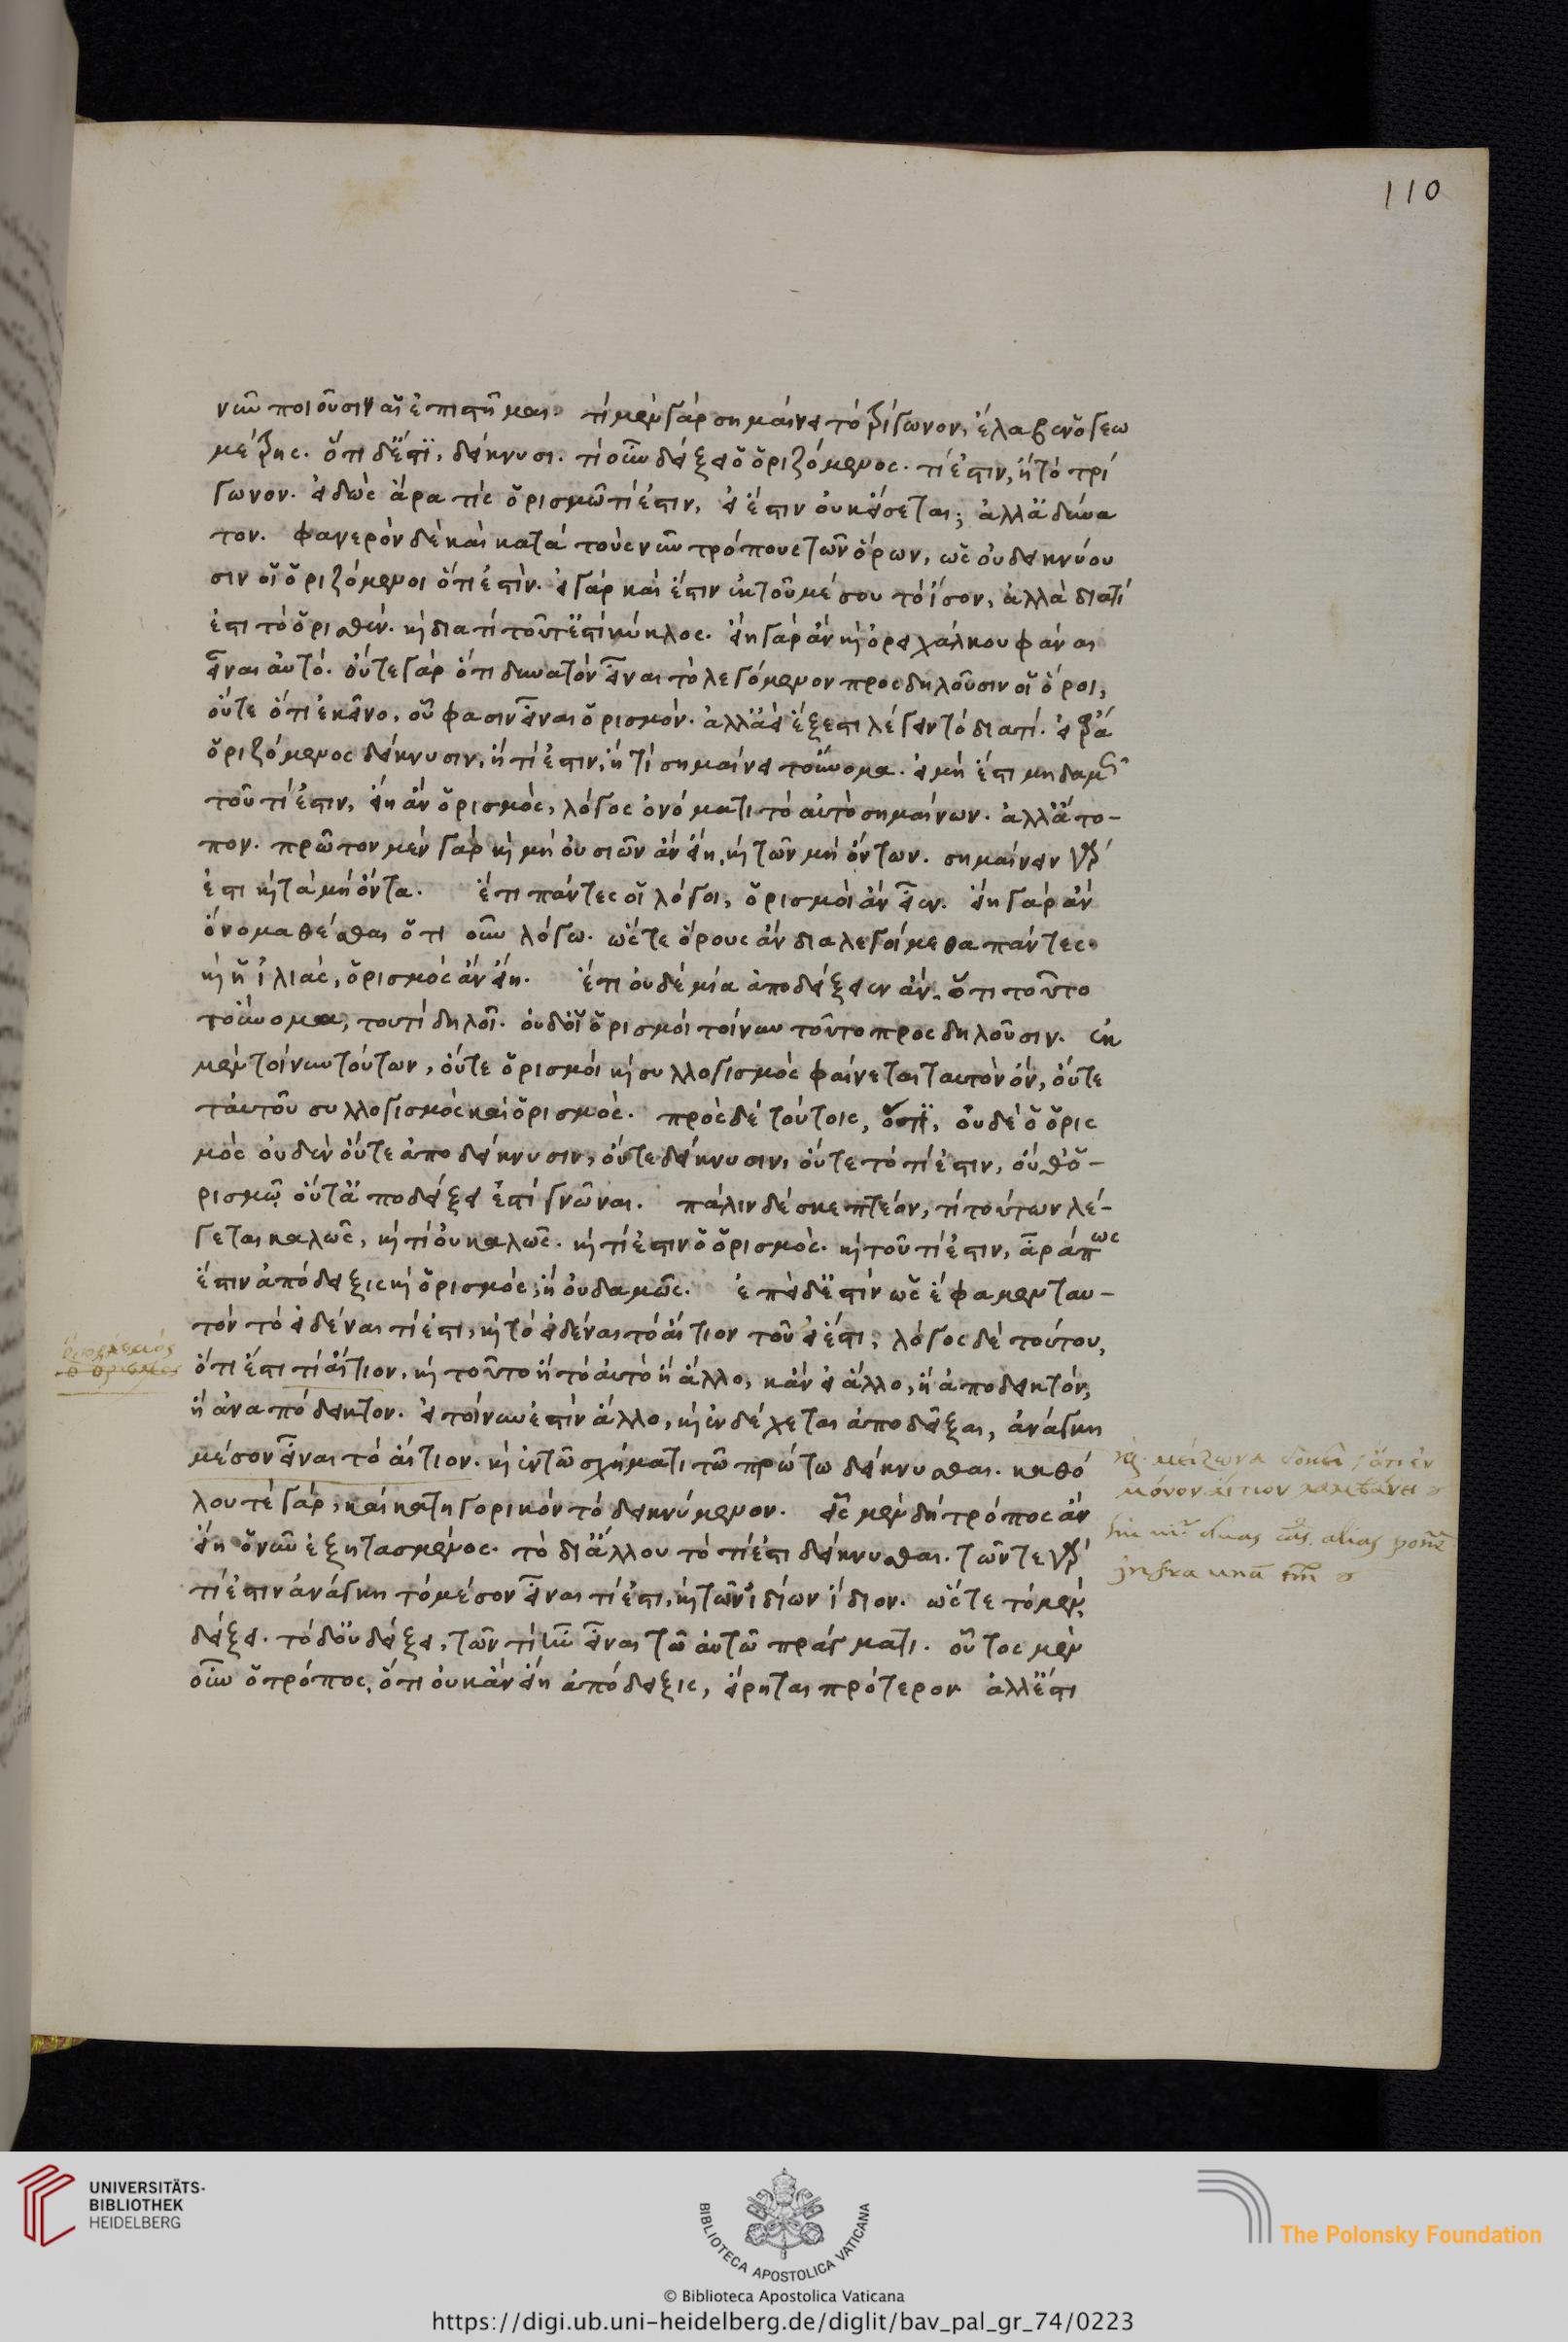 110
νῦν ποιοῦσιν αἱ ἐπιστῆμαι. τί μὲν γὰρ σημαίνει τὸ τρίγωνον, ἔλαβεν ὁ γεω
μέτρης. ὅτι δ' ἔστι, δείκνυσι. τί οὖν δείξει ὁ ὁριζόμενος. τί ἐστιν, ἢ τὸ τρί
γωνον. εἰδὼς ἄρα τίς ὁρισμῶ τί ἐστιν, εἰ ἔστιν οὐκ εἴσεται; ἀλλ' ἀδύνα
τον. φανερὸν δὲ καὶ κατὰ τοὺς νῦν τρόπους τῶν ὅρων, ὡς οὐ δεικνύου
σιν οἱ ὁριζόμενοι ὅτι ἐστίν. εἰ γὰρ καὶ ἔστιν ἐκ τοῦ μέσου τὸ ἴσον, ἀλλὰ διατί
ἐστι τὸ ὁρισθέν. κὶ διατί τοῦτ' ἐστὶ κύκλος. εἴη γὰρ ἂν κὶ ὀρειχάλκου φάναι
εἶναι αὐτό. οὔτε γὰρ ὅτι δυνατὸν εἶναι τὸ λεγόμενον προσδηλοῦσιν οἱ ὅροι,
οὔτε ὅτι ἐκεῖνο, οὗ φασὶν εἶναι ὁρισμόν. ἀλλ' ἀεὶ ἔξεστι λέγειν τὸ διατί. εἰ ἄρα
ὁριζόμενος δείκνυσιν, ἢ τί ἐστιν, ἢ τί σημαίνει τοὔνομα. εἰ μὴ ἔστι μηδαμῶς
τοῦ τί ἐστιν, εἴη ἂν ὁρισμὸς, λόγος ὀνόματι τὸ αὐτὸ σημαίνων. ἀλλ' ἄτο-
πον. πρῶτον μὲν γὰρ κὶ μὴ οὐσιῶν ἂν εἴη, κὶ τῶν μὴ ὄντων. σημαίνειν γάρ
ἐστι κὶ τὰ μὴ ὄντα. ἔτι πάντες οἱ λόγοι, ὁρισμοὶ ἂν εἶεν. εἴη γὰρ ἂν
ὄνομα θέσθαι ὅτι οὖν λόγω. ὥστε ὅρους ἂν διαλεγοίμεθα πάντες.
κὶ ἡ ἰλιὰς, ὁρισμὸς ἂν εἴη. ἔτι οὐδὲ μία ἀποδείξειεν ἂν, ὅτι τοῦτο
τοὔνομα, τουτὶ δηλοῖ. οὐδ' οἱ ὁρισμοὶ τοίνυν τοῦτο προσδηλοῦσιν. ἐκ
μὲν τοίνυν τούτων, οὔτε ὁρισμὸς κὶ συλλογισμὸς φαίνεται ταυτὸν ὄν, οὔτε
ταὐτοῦ συλλογισμὸς καὶ ὁρισμός. πρὸς δὲ τούτοις, ὅτι, οὐδὲ ὁ ὁρισ
μὸς οὐδὲν οὔτε ἀποδείκνυσιν, οὔτε δείκνυσιν, οὔτε τὸ τί ἐστιν, οὔθ' ὁ-
ρισμῷ οὔτ' ἀποδείξει ἐστὶ γνῶναι. πάλιν δὲ σκεπτέον, τί τούτων λέ-
γεται καλῶς, κὶ τί οὐ καλῶς. κὶ τί ἐστιν ὁ ὁρισμός. κὶ τοῦ τί ἐστιν, ἆρά πως
ἔστιν ἀπόδειξις κὶ ὁρισμός, ἢ οὐδαμῶς. ἐπεὶ δ' ἐστὶν ὡς ἔφαμεν ταυ-
τὸν τὸ εἰδέναι τί ἐστι, κὶ τὸ εἰδέναι τὸ αἴτιον τοῦ εἰ ἔστι, λόγος δὲ τούτου,
ὅτι ἔστι τί αἴτιον, κὶ τοῦτο ἢ τὸ αὐτὸ ἢ ἄλλο, κἂν εἰ ἄλλο, ἢ ἀποδεικτὸν,
ἢ ἀναπόδεικτον. εἰ τοίνυν ἐστὶν ἄλλο, κὶ ἐνδέχεται ἀποδεῖξαι, ἀνάγκη
μέσον εἶναι τὸ αἴτιον. κὶ ἐν τῶ σχήματι τῶ πρώτω δείκνυσθαι. καθό
λου τὲ γάρ, καὶ κατηγορικὸν τὸ δεικνύμενον. εἷς μὲν δὴ τρόπος ἂν
εἴη ὁ νῦν ἐξητασμένος. τὸ δι' ἄλλου τὸ τί ἐστι δείκνυσθαι. τῶν τε γάρ
τί ἐστιν ἀνάγκη τὸ μέσον εἶναι τί ἐστι, κὶ τῶν ἰδίων ἴδιον. ὥστε τὸ μὲν
δείξει. τὸ δ' οὐ δείξει, τῶν τί ἦν εἶναι τῶ αὐτῶ πράγματι. οὗτος μὲν
οὖν ὁ τρόπος, ὅτι οὐκ ἂν εἴη ἀπόδειξις, εἴρηται πρότερον ἀλλ' ἔστι
ὁ ὁρισμὸς
μείζονα δοκεῖ, ὅτι ἐν
μόνον αἴτιον λαμβάνει
hic duas alias
infra unā
UNIVERSITÄTS-
BIBLIOTHEK
HEIDELBERG
BIBLIOTECA APOSTOLICA VATICANA
The Polonsky Foundation
© Biblioteca Apostolica Vaticana
https://digi.ub.uni-heidelberg.de/diglit/bav_pal_gr_74/0223